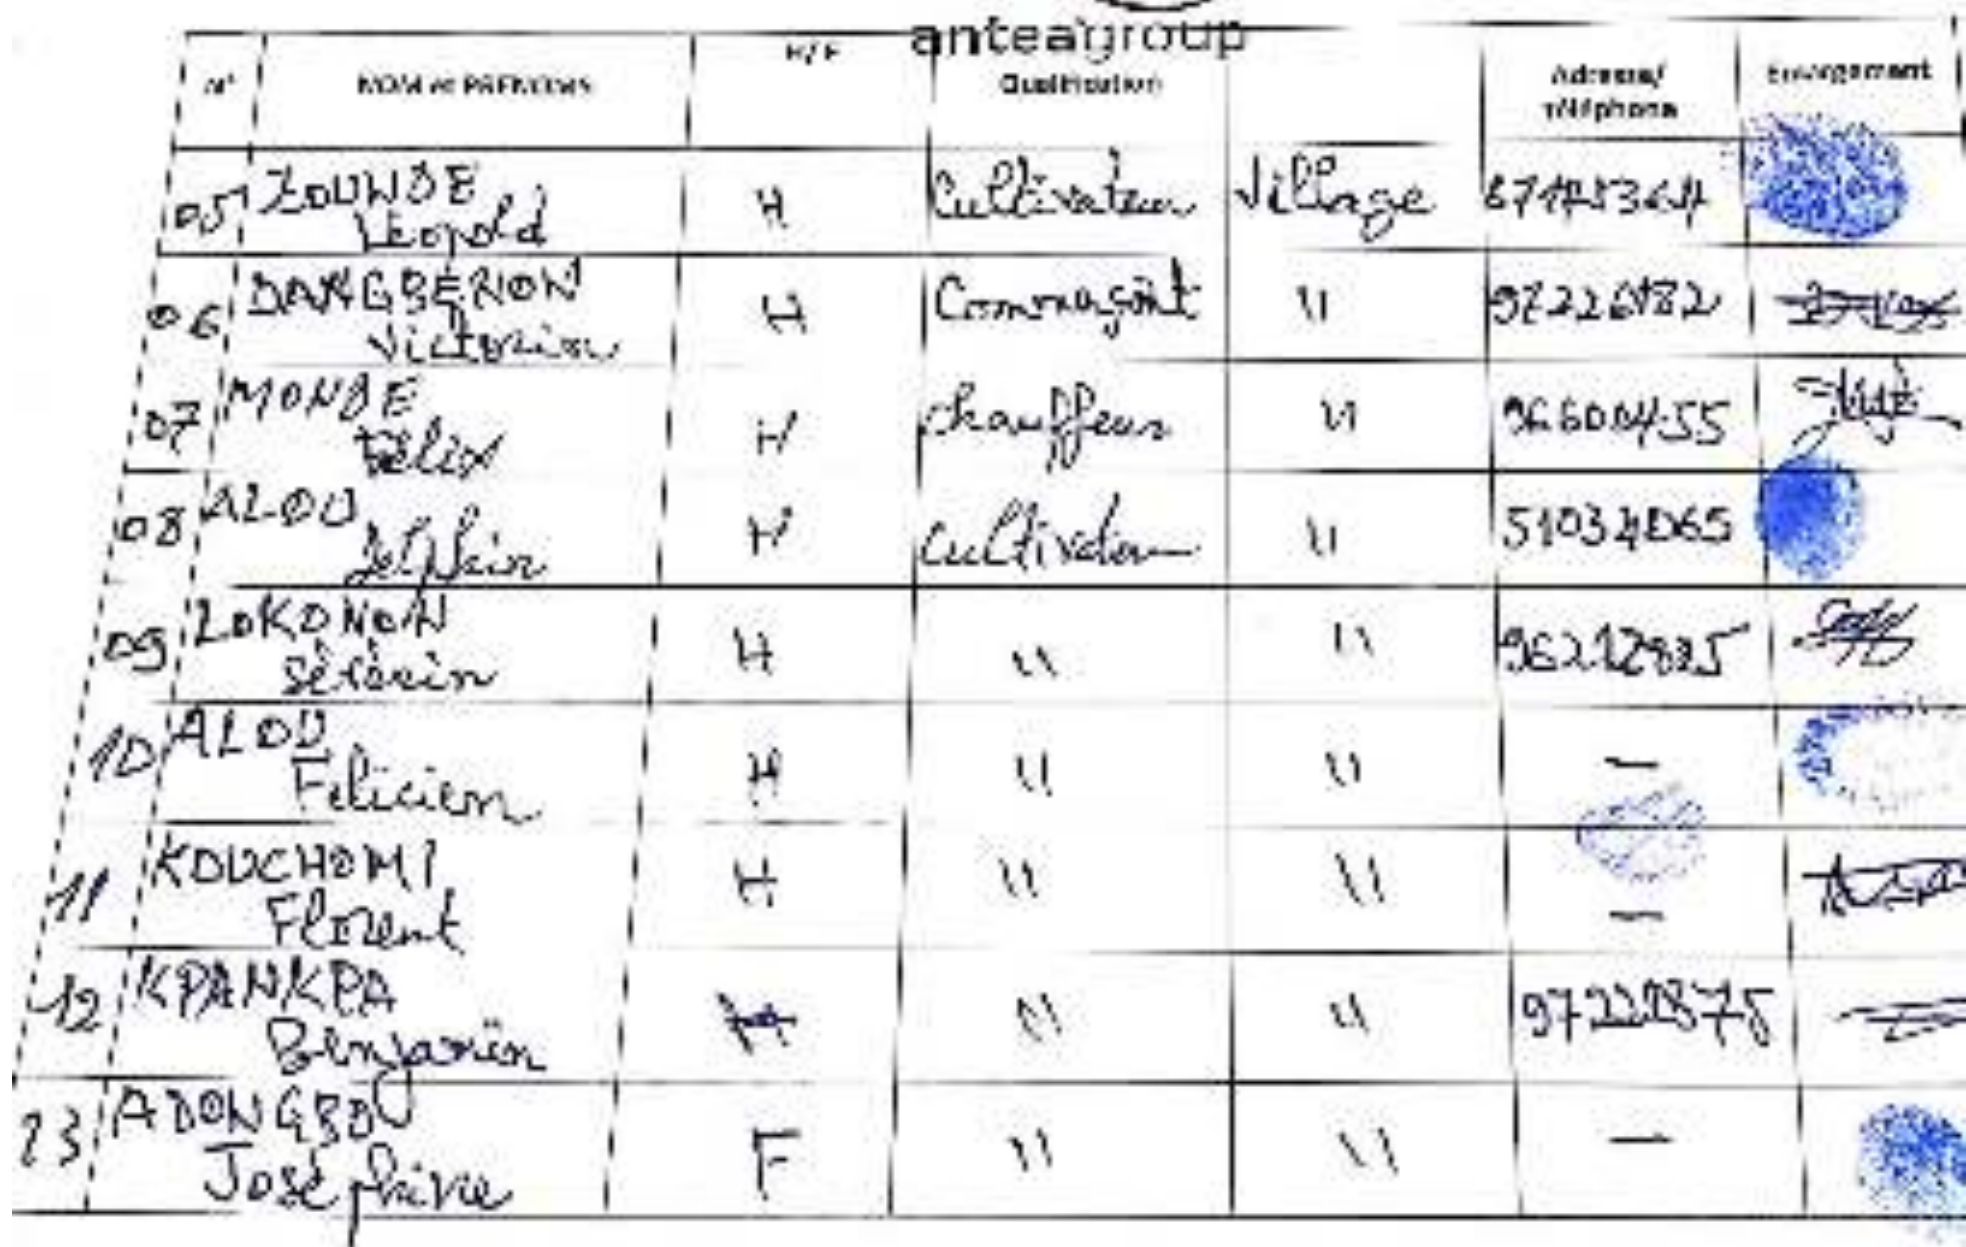 anteagroup
N° NOM et PRENOMS H/F Qualification Adresse/
téléphone Emargement
05 ZOUNDE
Léopold H Cultivateur Village
06 DANGBENON
Victorien H " 97226182
07 MONDE
Félix H chauffeur " 96600455
08 ALOU
Delphin H cultivateur "
09 LOKONON
H " "
10 ALOU
Felicien H " " —
11 KOUCHOMI
Florent H " " —
12 KPANKPA
Benjamin H " "
13 ADONGBO
Joséphine F " " —